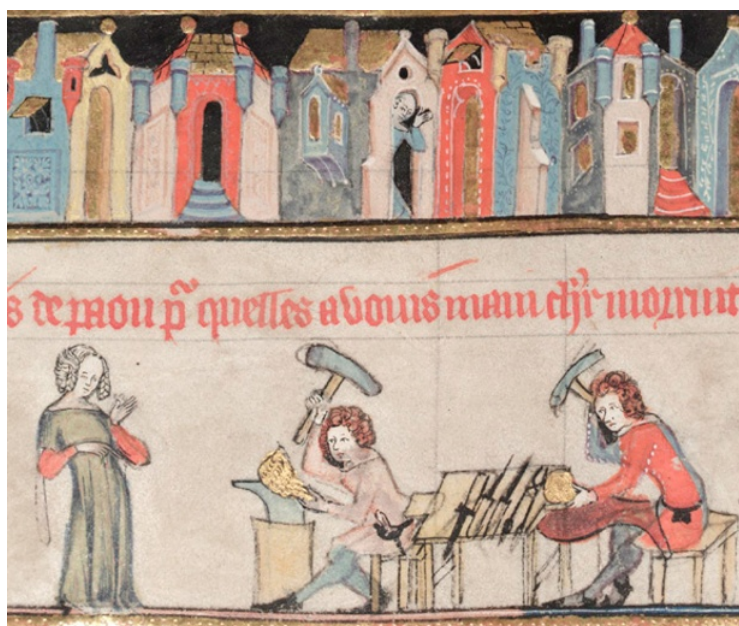 s de paon p̃ quelles avouis main chr̃ morrunt